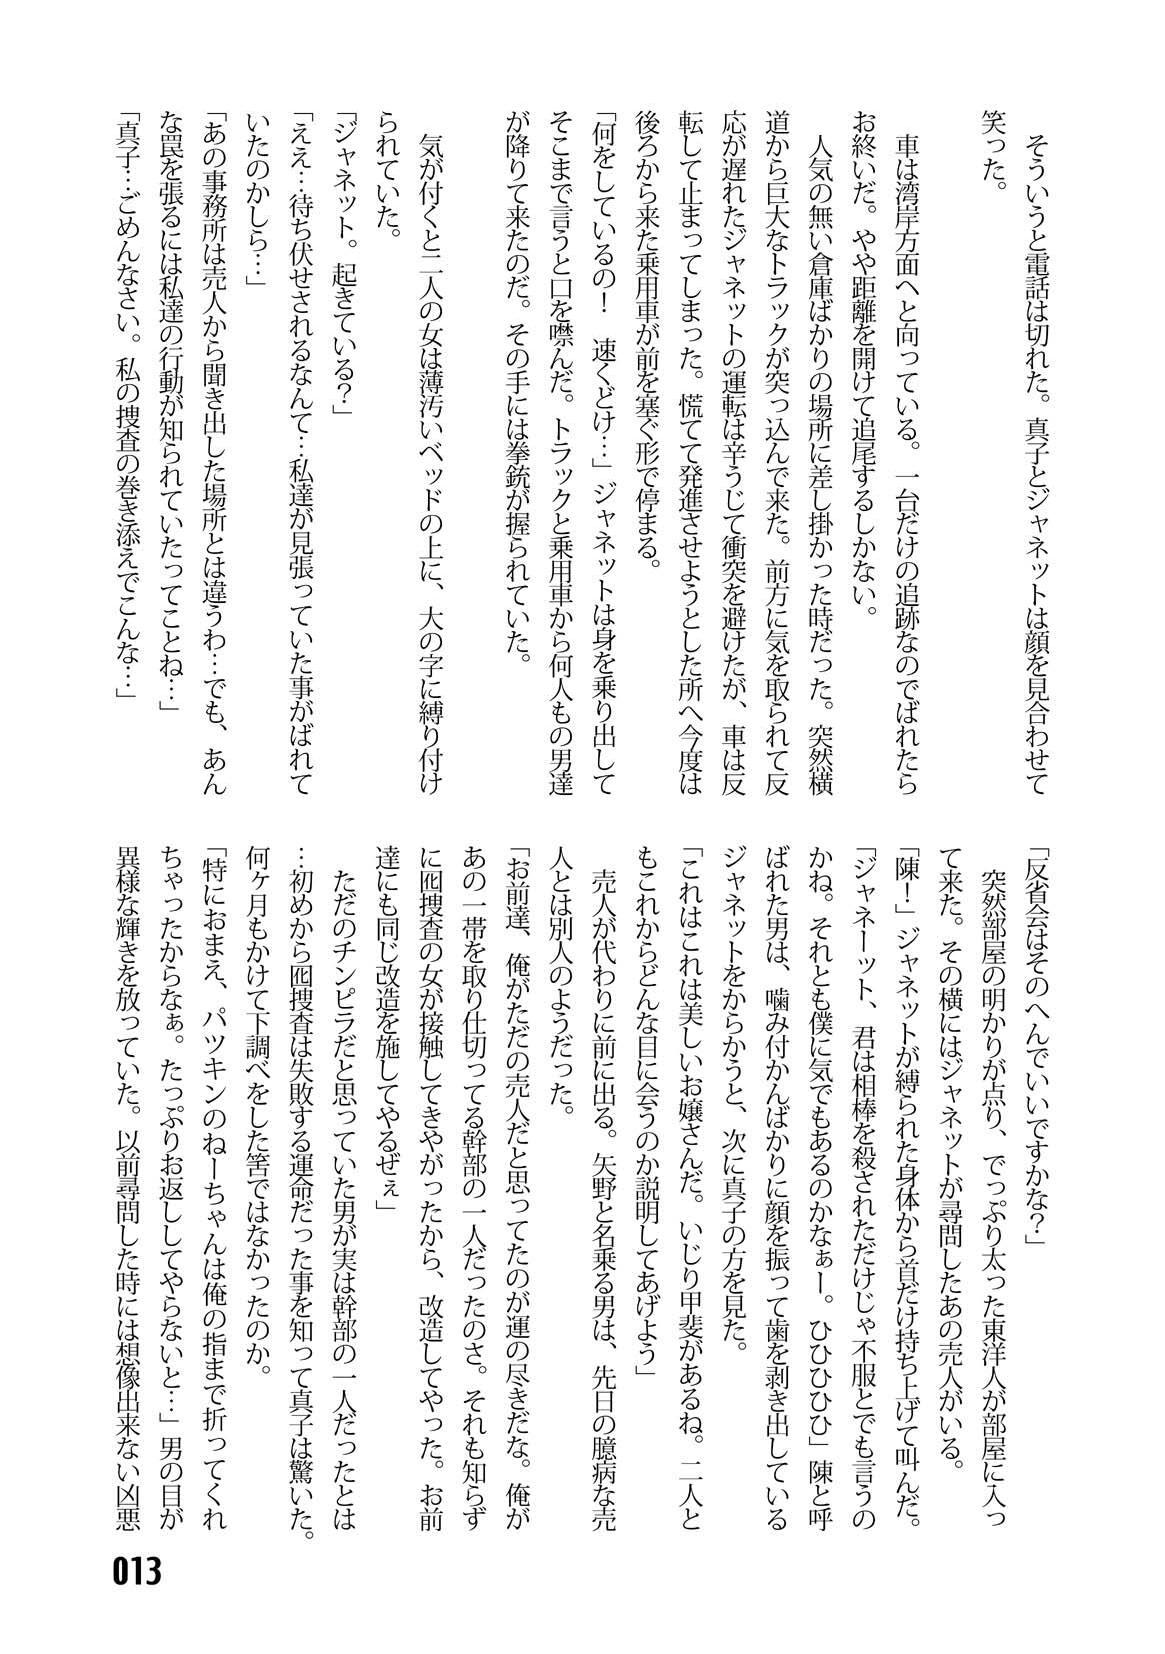 そういうと電話は切れた。真子とジャネットは顔を見合わせて
笑った。
　車は湾岸方面へと向っている。一台だけの追跡なのでばれたら
お終いだ。やや距離を開けて追尾するしかない。
　人気の無い倉庫ばかりの場所に差し掛かった時だった。突然横
道から巨大なトラックが突っ込んで来た。前方に気を取られて反
応が遅れたジャネットの運転は辛うじて衝突を避けたが、車は反
転して止まってしまった。慌てて発進させようとした所へ今度は
後ろから来た乗用車が前を塞ぐ形で停まる。
「何をしているの！　速くどけ…」ジャネットは身を乗り出して
そこまで言うと口を噤んだ。トラックと乗用車から何人もの男達
が降りて来たのだ。その手には拳銃が握られていた。
　気が付くと二人の女は薄汚いベッドの上に、大の字に縛り付け
られていた。
「ジャネット。起きている？」
「ええ…待ち伏せされるなんて…私達が見張っていた事がばれて
いたのかしら…」
「あの事務所は売人から聞き出した場所とは違うわ…でも、あん
な罠を張るには私達の行動が知られていたってことね…」
「真子…ごめんなさい。私の捜査の巻き添えでこんな…」
「反省会はそのへんでいいですかな？」
　突然部屋の明かりが点り、でっぷり太った東洋人が部屋に入っ
て来た。その横にはジャネットが尋問したあの売人がいる。
「陳！」ジャネットが縛られた身体から首だけ持ち上げて叫んだ。
「ジャネーット、君は相棒を殺されただけじゃ不服とでも言うの
かね。それとも僕に気でもあるのかなぁー。ひひひひひ」陳と呼
ばれた男は、噛み付かんばかりに顔を振って歯を剥き出している
ジャネットをからかうと、次に真子の方を見た。
「これはこれは美しいお嬢さんだ。いじり甲斐があるね。二人と
もこれからどんな目に会うのか説明してあげよう」
　売人が代わりに前に出る。矢野と名乗る男は、先日の臆病な売
人とは別人のようだった。
「お前達、俺がただの売人だと思ってたのが運の尽きだな。俺が
あの一帯を取り仕切ってる幹部の一人だったのさ。それも知らず
に囮捜査の女が接触してきやがったから、改造してやった。お前
達にも同じ改造を施してやるぜぇ」
　ただのチンピラだと思っていた男が実は幹部の一人だったとは
…初めから囮捜査は失敗する運命だった事を知って真子は驚いた。
何ヶ月もかけて下調べをした筈ではなかったのか。
「特におまえ、パツキンのねーちゃんは俺の指まで折ってくれ
ちゃったからなぁ。たっぷりお返ししてやらないと…」男の目が
異様な輝きを放っていた。以前尋問した時には想像出来ない凶悪
013